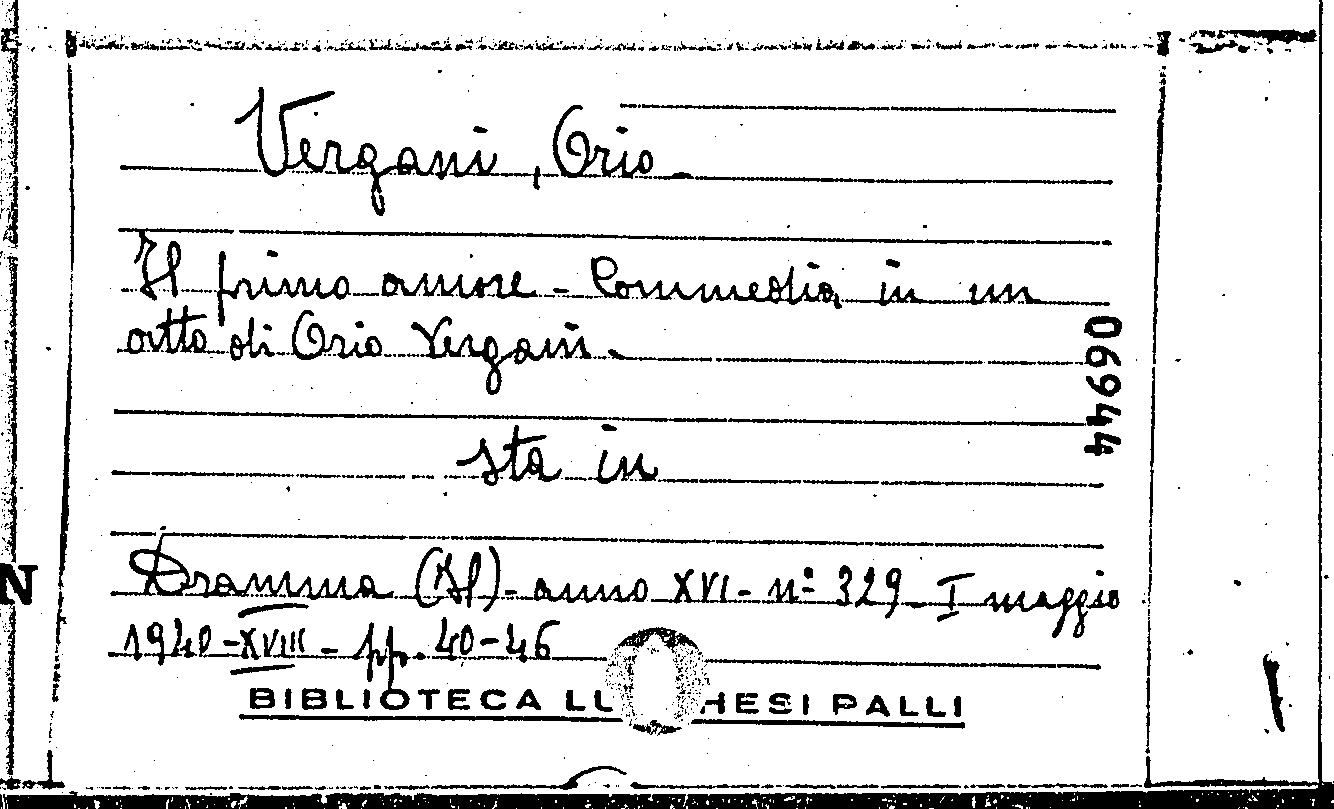 Vergani, Orio.
Il primo amore - Commedia in un
atto di Orio Vergani.
06944
sta in
Dramma (Il) - anno XVI - nº 329 - I maggio
1940 - XVIII - pp. 40-46
N
BIBLIOTECA LU HESI PALLI